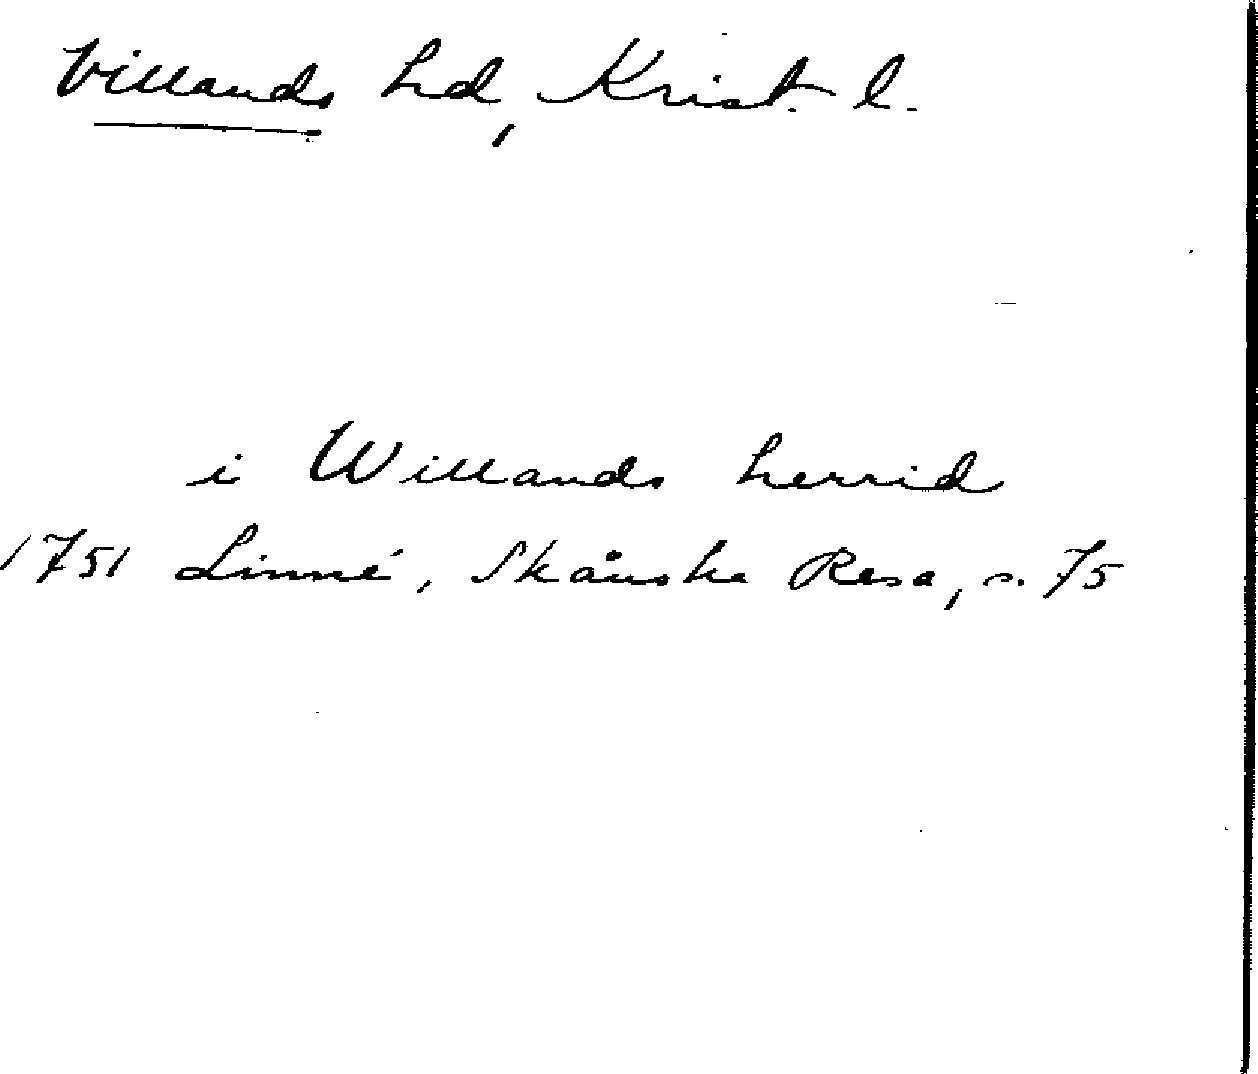 Villands hd, Krist. l.
i Willands herrid
1751 Linné, Skånska Resa, s. 75